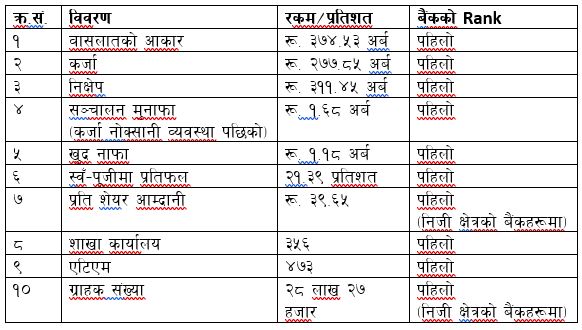 क्र.सं. विवरण रकम/प्रतिशत बैंकको Rank
१ वासलातको आकार रू. ३७४.५३ अर्ब पहिलो
२ कर्जा रू. २७७.८५ अर्ब पहिलो
३ निक्षेप रू. ३११.४५ अर्ब पहिलो
४ सञ्चालन मुनाफा रू. १.६८ अर्ब पहिलो
(कर्जा नोक्सानी व्यवस्था पछिको)
५ खुद नाफा रू. १.१८ अर्ब पहिलो
६ स्वँ-पूजीमा प्रतिफल २१.३९ प्रतिशत पहिलो
७ प्रति शेयर आम्दानी रू. ३९.६५ पहिलो
(निजी क्षेत्रको बैंकहरूमा)
८ शाखा कार्यालय ३५६ पहिलो
९ एटिएम ४७३ पहिलो
१० ग्राहक संख्या २८ लाख २७ पहिलो
हजार (निजी क्षेत्रको बैंकहरूमा)